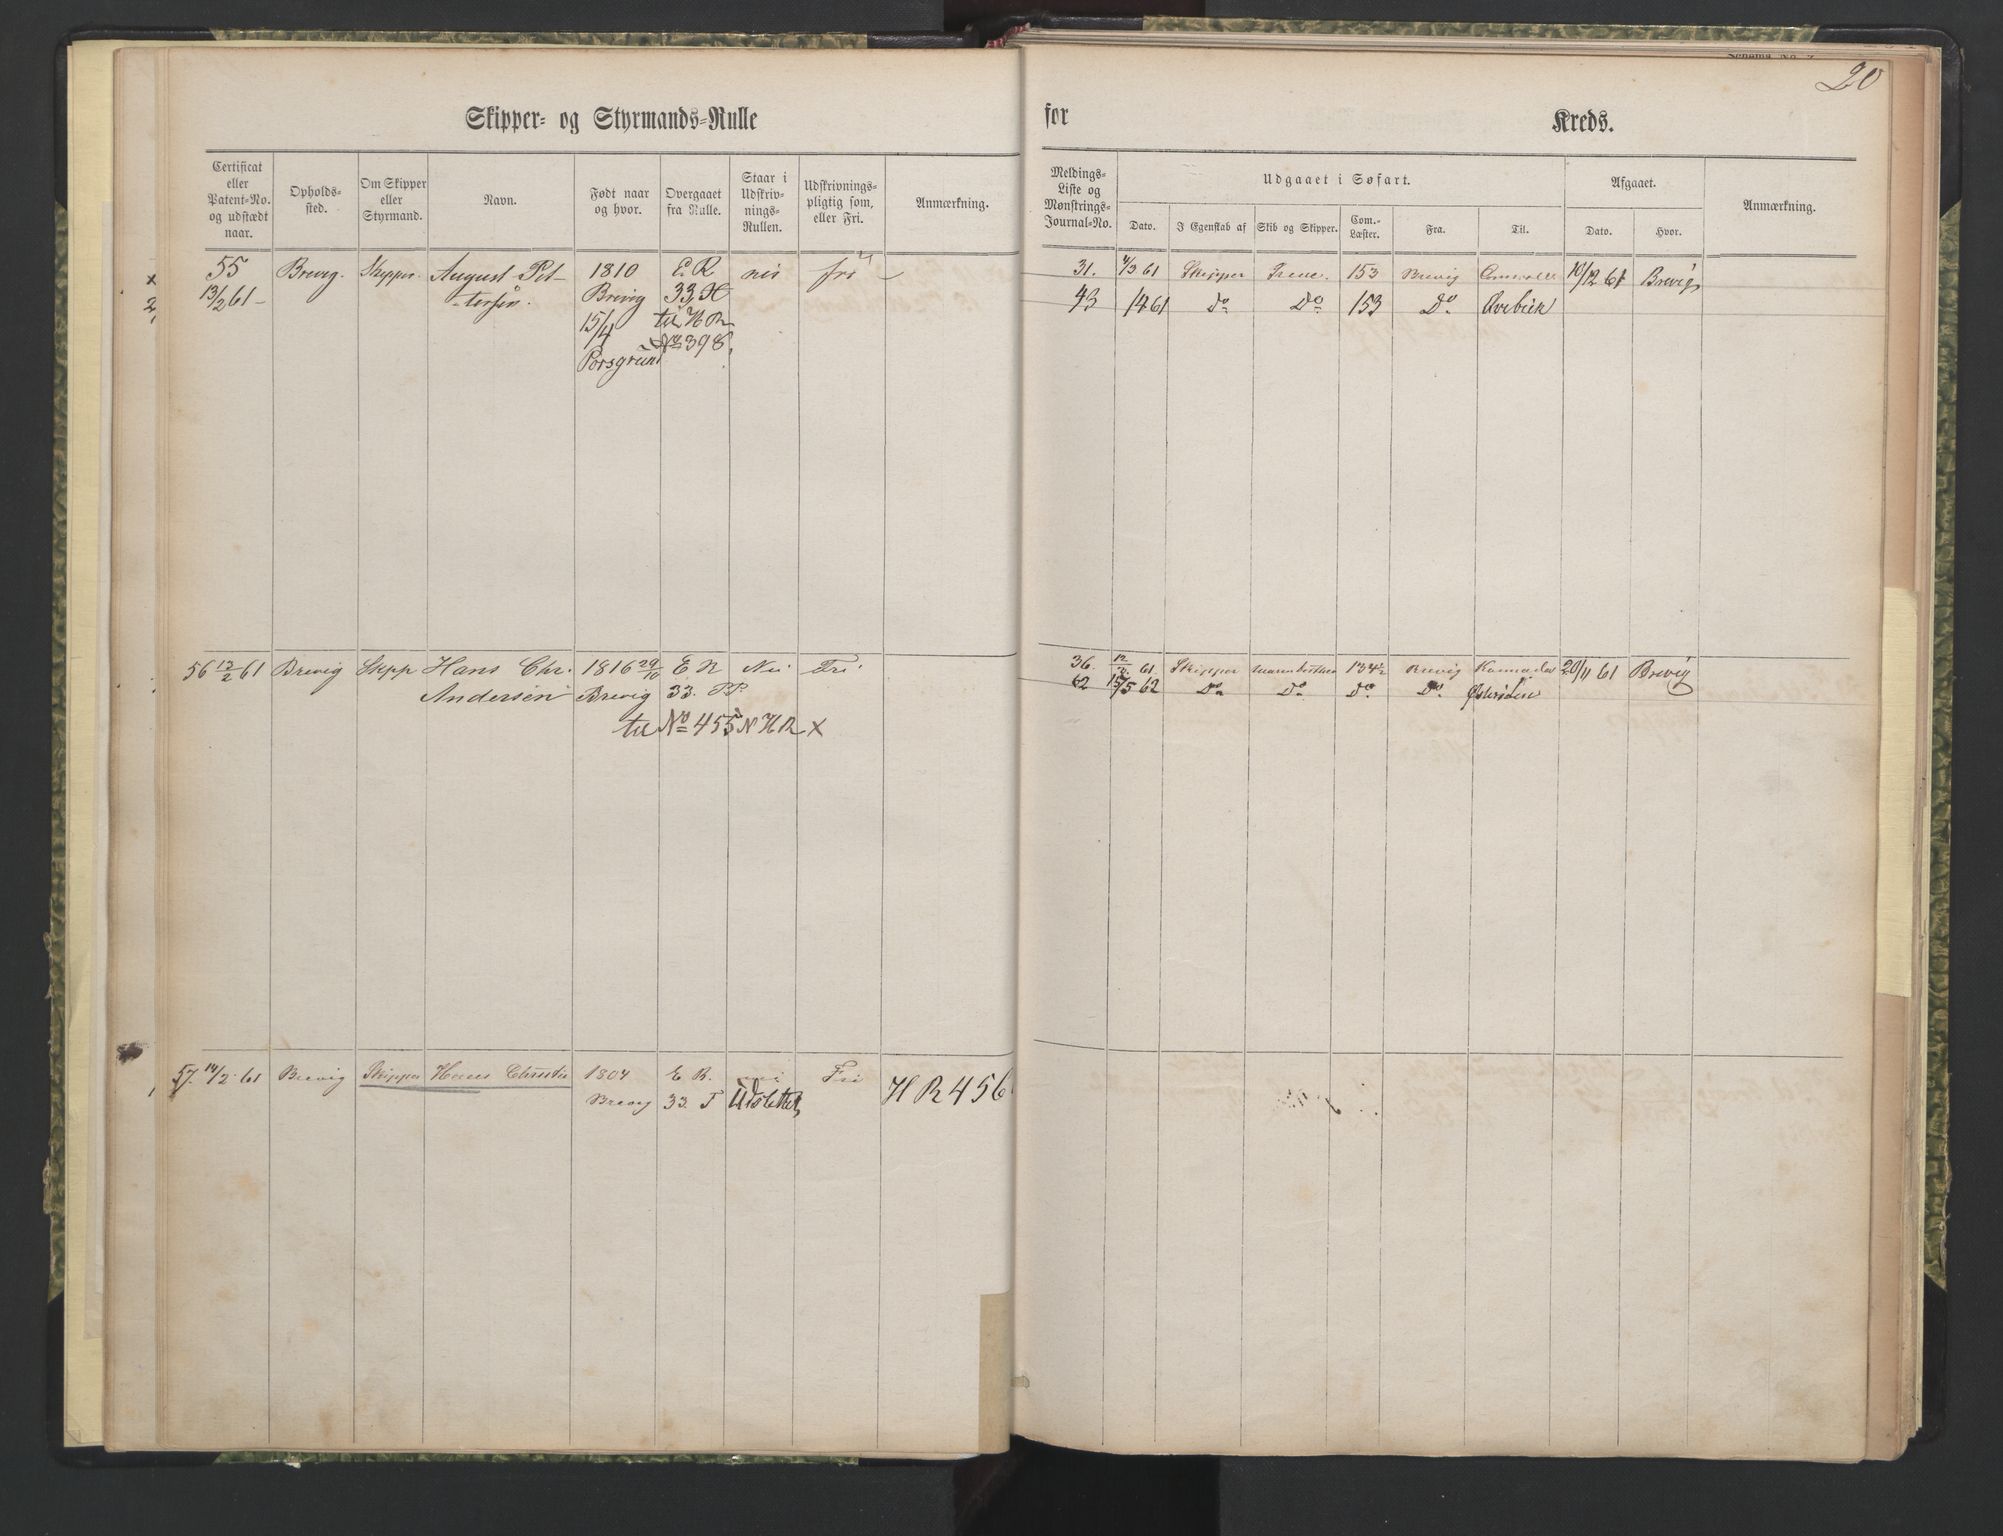 Skipper- og Styrmands-Rulle
for Kreds.
20
Certificat eller Patent-No. og udstædt naar.
Opholds-sted.
Om Skipper eller Styrmand.
Navn.
Født naar og hvor.
Overgaaet fra Rulle.
Staar i Udskriv-nings-Rullen.
Udskrivnings-pligtig som, eller Fri.
Anmærkning.
Meldings-Liste og Mønstrings-Journal-No.
Udgaaet i Søfart.
Dato.
I Egenskab af
Skib og Skipper.
Com.-Læster.
Fra.
Til.
Afgaaet.
Dato.
Hvor.
Anmærkning.
55 Brevig. Skipper. August Pet- 1810 E. R nei fri
13/2 61 - -tersen. Brevig 33, H
15/4 til H R
Porsgrund No 398.
31. 4/3 61 Skipper Irene. 153 Brevig 10/12 61 Brevig
43 1/4 61 Do Do 153 Do
56 13/2 61 Brevig Skpp Hans Chr. 1816 29/10 E R Nei Fri
Andersen Brevig 33. PP.
til No 455 N H R x
36. 61 Skipper 134½ Brevig 20/11 61 Brevig
62 15/5 62 Do Do Do Do
57. 14/2 61 Brevig Skipper Hans Christie 1804 E R. nei Fri H R 456
Brevig 33. T Udslettet